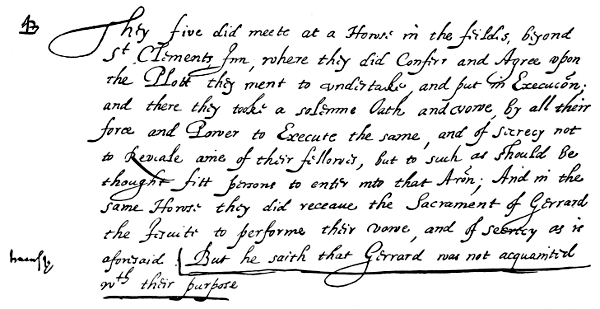 They five did meete at a Howse in the feildis, beyond
St. Clements Inn, where they did Conferr and Agree vpon
the Plott they ment to vndertake, and put in Execucōn;
and there they tooke a solemne Oath and vowe, by all their
force and Power to Execute the same, and of secrecy not
to Reveale anie of their fellowes, but to such as should be
thought fitt persons to enter into that Acōn; And in the
same Howse they did receaue the Sacrament of Gerrard
the Jesuite to performe their vowe, and of secrecy as is
aforesaid. But he saith that Gerrard was not acquainted
wth their purpose